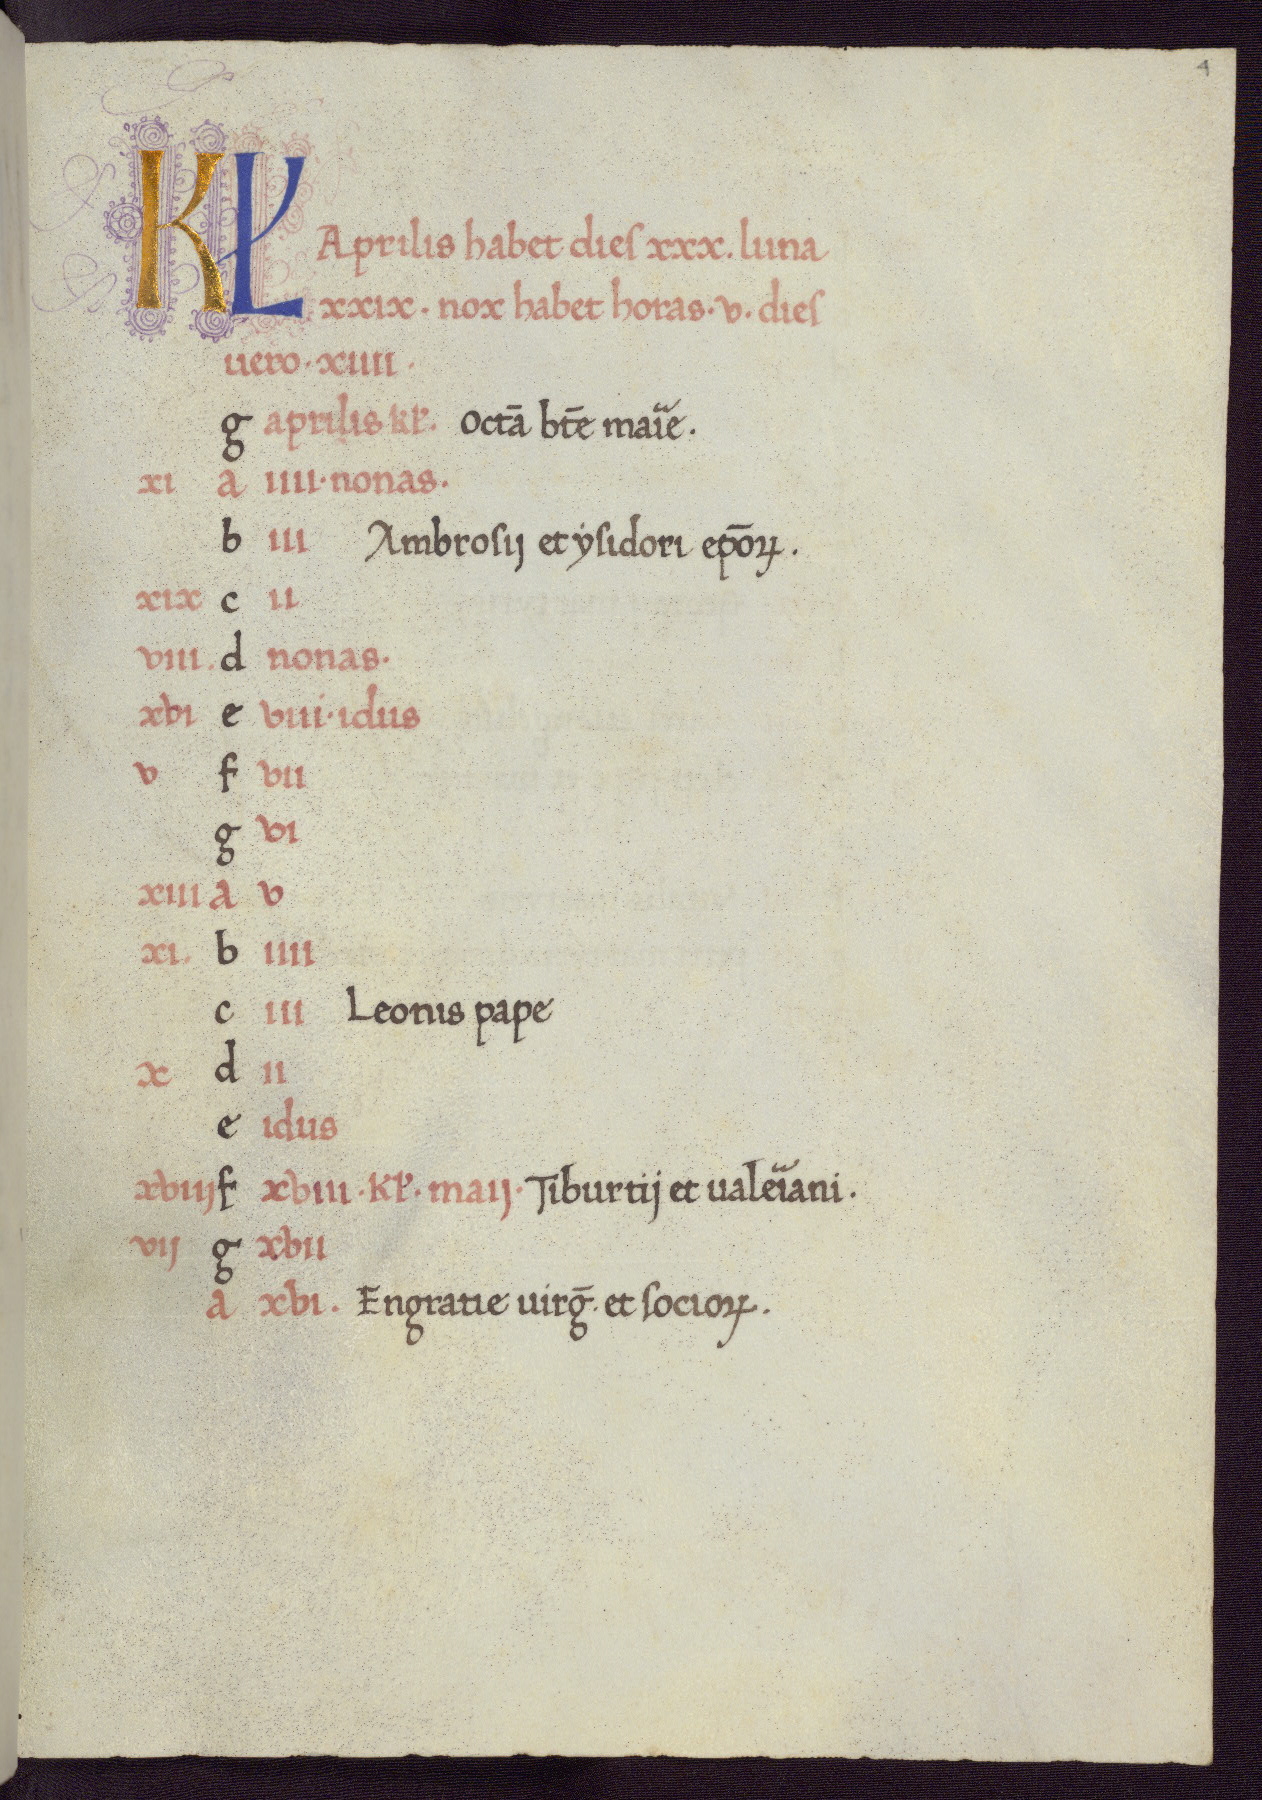 4
KL Aprilis habet dieſ xxx. luna
xxix · nox habet horas · v · dieſ
uero · xiiii ·
g aprilis kł. octā bt̄e marie .
xi a iiii · nonas ·
b iii Ambroſij et ẏſidori ep̄oꝝ .
xix c ii
viii . d nonas ·
xvi e viii · idus
v f vii
g vi
xiii a v
xi . b iiii
c iii Leonis pape
x d ii
e idus
xviij f xviii · kł · maij · Tiburtij et ualeriani .
vij g xvii
a xvi . Engratie uirḡ . et ſocioꝝ .